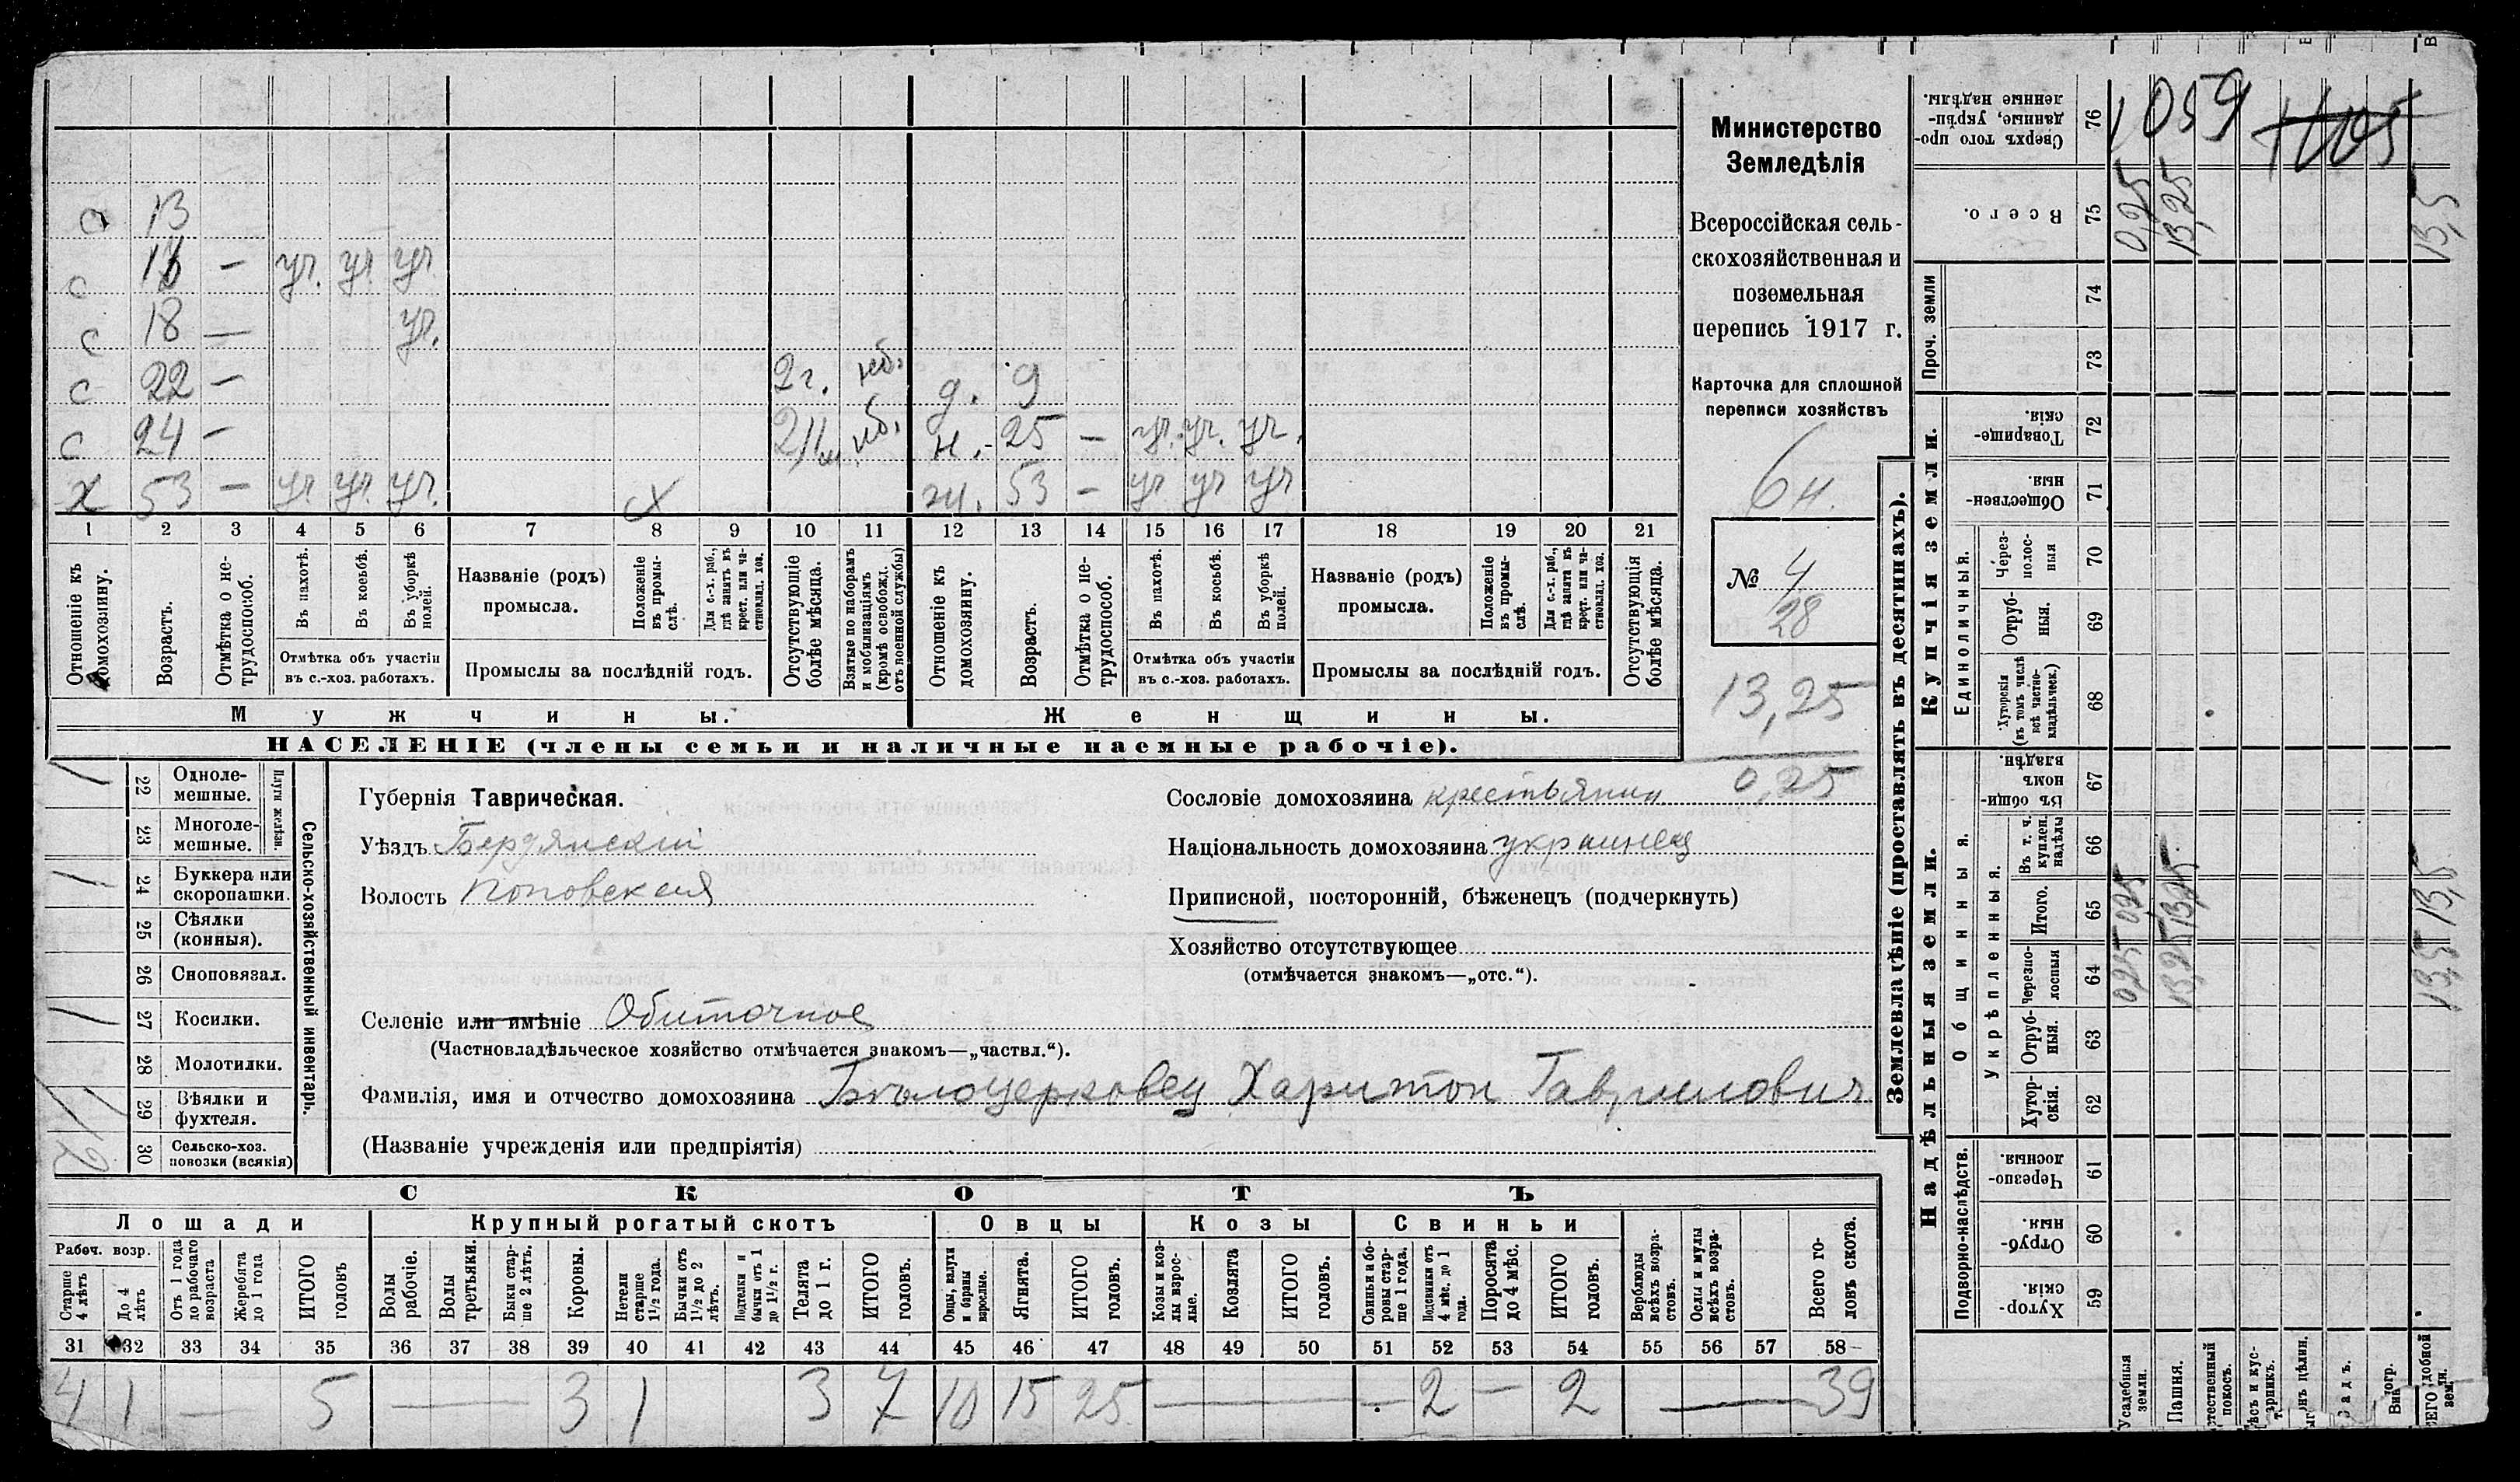 Министерство
Земледѣлія
Всероссійская сель-
скохозяйственная и
поземельная
перепись 1917 г.
Карточка для сплошной
переписи хозяйствъ
6 н.
№ 4
28
13,25
0,25
с 13
с – уч. уч. уч.
с 18 — уч.
с 22 — 2 г. моб. д. 9
с 24 – моб. н. - 25 – уч. уч. уч.
х 53 – уч уч. уч. сх ж. 53 – уч уч уч
1 2 3 4 5 6 7 8 9 10 11 12 13 14 15 16 17 18 19 20 21
Отношеніе къ домохозяину.
Возрастъ.
Отмѣтка о не-трудоспособ.
Въ пахотѣ.
Въ косьбѣ.
Въ уборкѣ полей.
Отмѣтка объ участіи
въ с.-хоз. работахъ.
Названіе (родъ)
промысла.
Положеніе въ промы-слѣ.
Для с.-х. раб., гдѣ занятъ въ крест. или ча-стновлад. хоз.
Промыслы за послѣдній годъ.
Отсутствующіе болѣе мѣсяца.
Взятые по наборамъ и мобилизаціямъ (кромѣ освобожд. отъ военной службы)
Отношеніе къ домохозяину.
Возрастъ.
Отмѣтка о не-трудоспособ.
Въ пахотѣ.
Въ косьбѣ.
Въ уборкѣ полей.
Отмѣтка объ участіи
въ с.-хоз. работахъ.
Названіе (родъ)
промысла.
Положеніе въ промы-слѣ.
Для с.-х. раб., гдѣ занята въ крест. или ча-стновлад. хоз.
Промыслы за послѣдній годъ.
Отсутствующія болѣе мѣсяца.
Мужчины. Женщины.
НАСЕЛЕНІЕ (члены семьи и наличные наемные рабочіе).
Сельско-хозяйственный инвентарь.
Плуги желѣзн.
1 22 Однолемешные.
23 Многолемешные.
1 24 Буккера или скоропашки.
25 Сѣялки (конныя).
26 Сноповязал.
1 27 Косилки.
28 Молотилки.
1 29 Вѣялки и фухтеля.
2 30 Сельско-хоз. повозки (всякія)
Губернія Таврическая.
Уѣздъ Бердянскій
Волость Поповская
Селеніе или имѣніе Обиточное
(Частновладѣльческое хозяйство отмѣчается знакомъ—„частвл.“).
Фамилія, имя и отчество домохозяина Бѣлоцерковец Харитон Гаврилович
(Названіе учрежденія или предпріятія)
Сословіе домохозяина крестьянин
Національность домохозяина украинец
Приписной, посторонній, бѣженецъ (подчеркнуть)
Хозяйство отсутствующее
(отмѣчается знакомъ—„отс.“).
СКОТЪ
Лошади Крупный рогатый скотъ Овцы Козы Свиньи
Рабоч. возр.
Старше 4 лѣтъ
До 4 лѣтъ
Отъ 1 года до рабочаго возраста
Жеребята до 1 года
ИТОГО головъ
Волы рабочіе.
Волы третьяки.
Быки стар-ше 2 лѣтъ.
Коровы.
Нетели старше 1½ года.
Бычки отъ 1½ до 2 лѣтъ.
Подтелки и бычки отъ 1 до 1½ г.
Телята до 1 г.
ИТОГО головъ.
Овцы, валухи и бараны взрослые.
Ягнята.
ИТОГО головъ.
Козы и коз-лы взрос-лые.
Козлята
ИТОГО головъ.
Свиньи и бо-ровы стар-ше 1 года.
Подсвинки отъ 4 мѣс. до 1 года.
Поросята до 4 мѣс.
ИТОГО головъ.
Верблюды всѣхъ возра-стовъ.
Ослы и мулы всѣхъ возра-стовъ.
Всего го-ловъ скота.
31 32 33 34 35 36 37 38 39 40 41 42 43 44 45 46 47 48 49 50 51 52 53 54 55 56 57 58
4 1 — 5 — 3 1 3 7 10 15 25 — 2 — 2 — 39
Землевладѣніе (проставлять въ десятинахъ).
Купчія земли.
Надѣльныя земли.
76 Сверхъ того про-данные, укрѣп-ленные надѣлы.
1059
75 Всего. 0,25 13,25 13,5
Проч. земли
74
73
72 Товарище-скія.
71 Обществен-ныя.
Единоличныя.
70 Черезполос-ныя
69 Отруб-ныя.
68 Хуторскія (въ томъ числѣ всѣ частно-владѣльческ.)
Общинныя.
67 Въ общин-номъ владѣн.
Укрѣпленныя.
66 Въ т. ч. куплен. надѣлы
65 Итого. 0,25 13,25 13,5
64 Черезпо-лосныя 0,25 13,25 13,5
63 Отруб-ныя.
62 Хутор-скія.
Подворно-наслѣдств.
61 Черезпо-лосныя.
60 Отруб-ныя.
59 Хутор-скія.
Усадебныя земли.
Пашня.